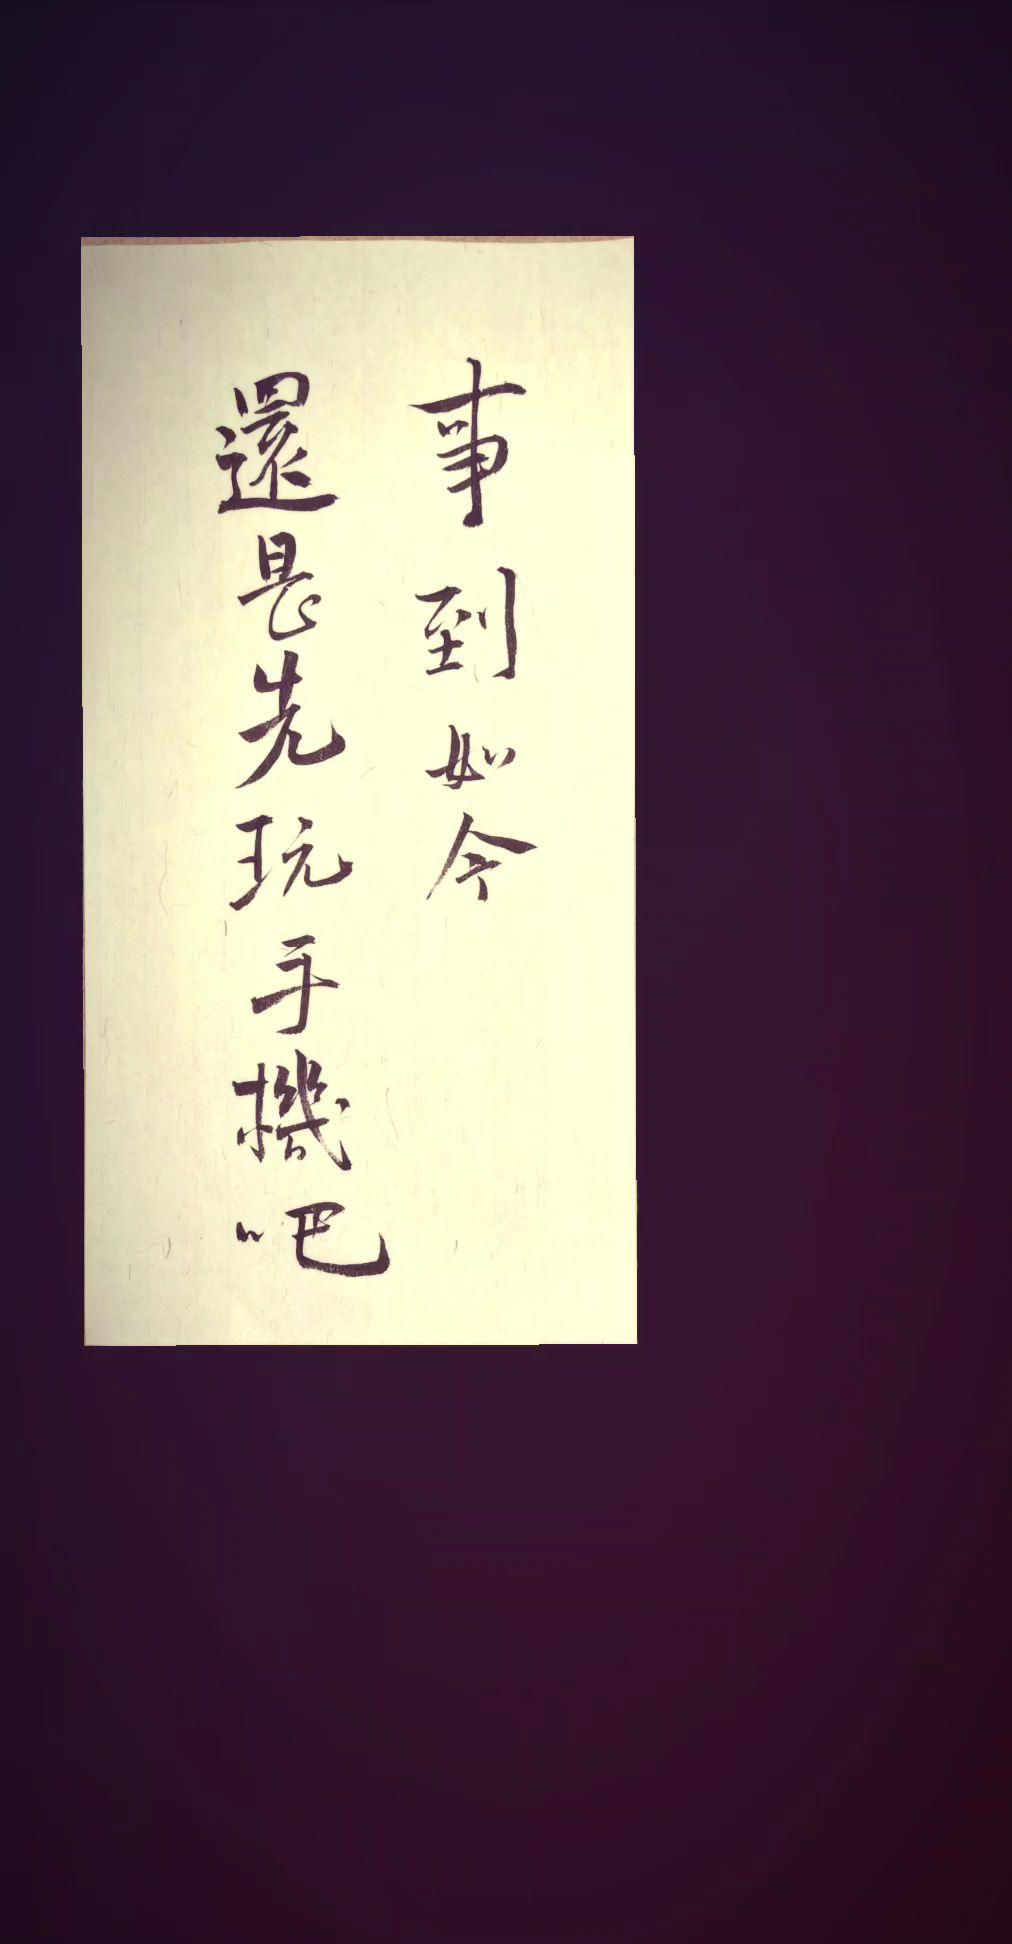 事到如今
還是先玩手機吧